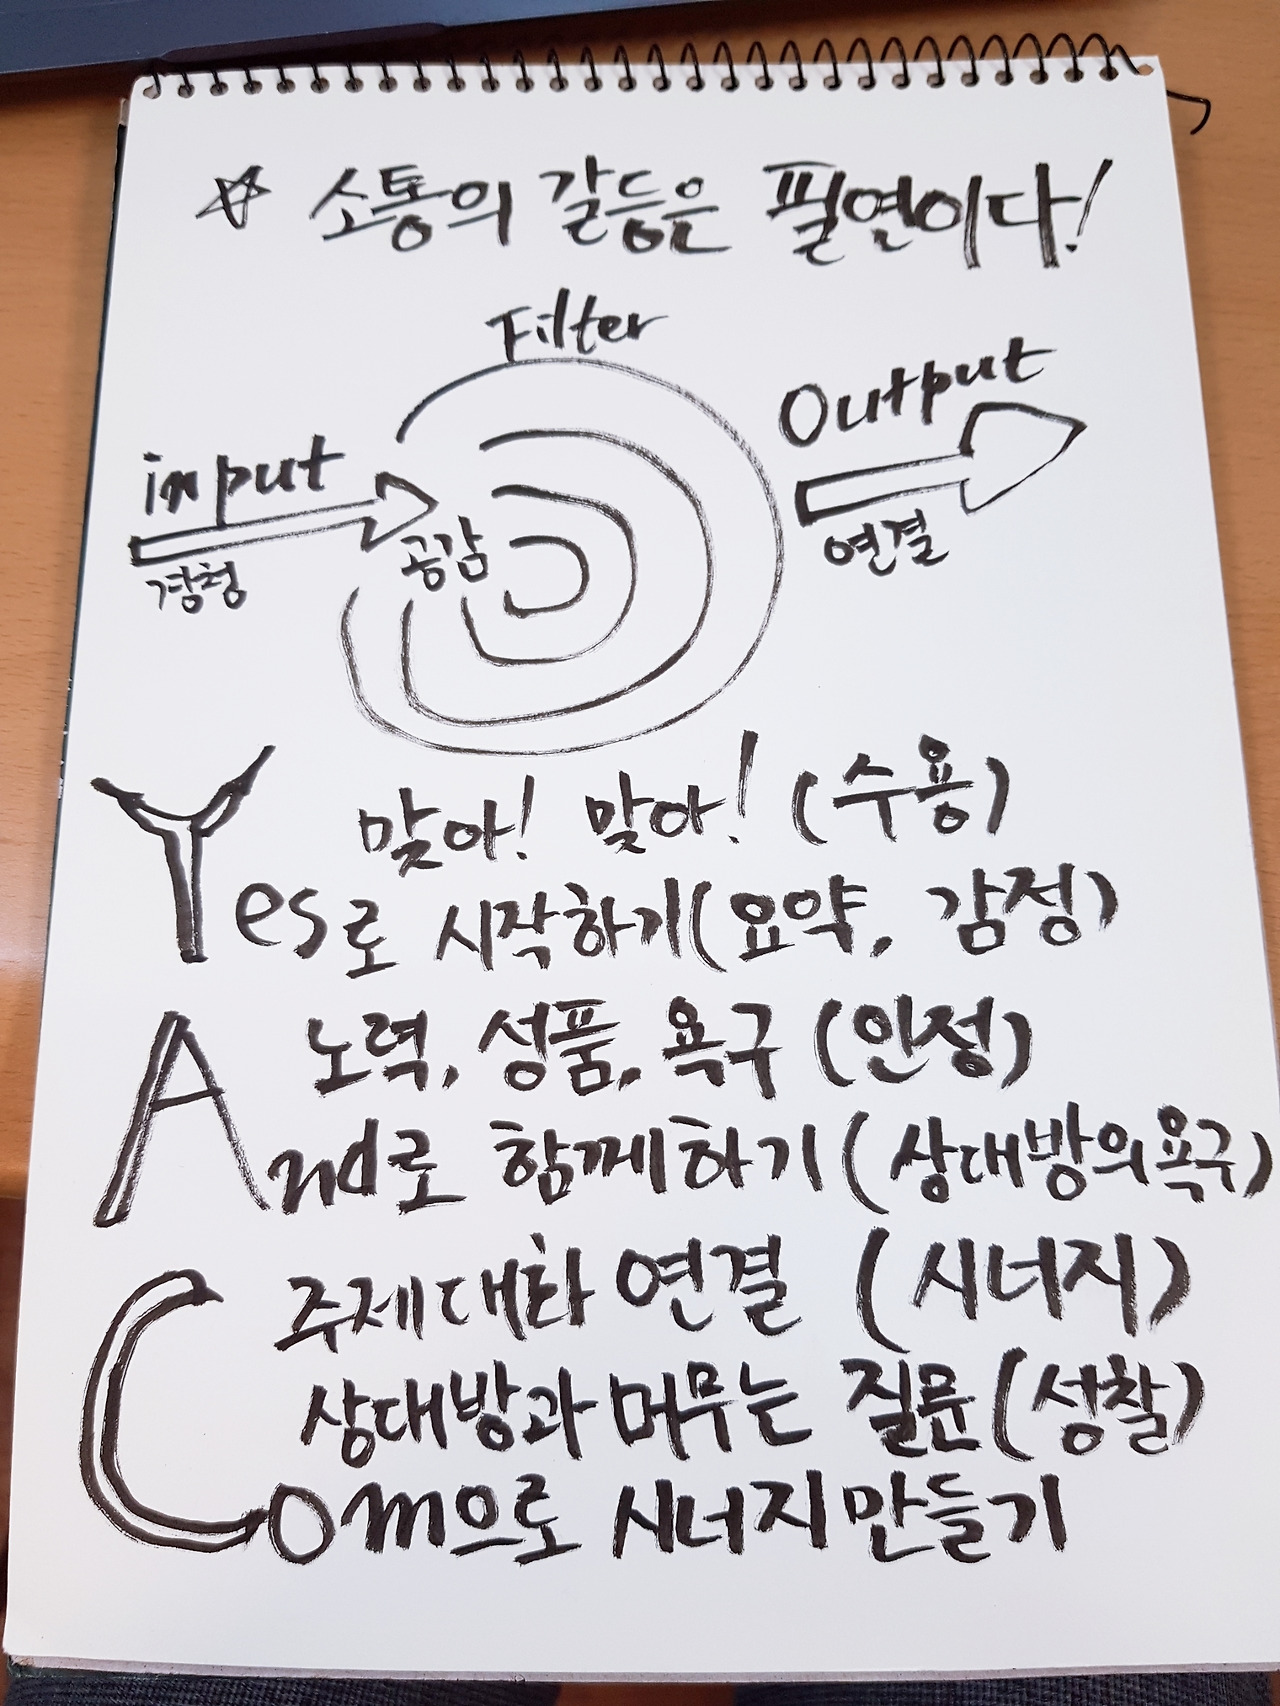 ☆ 소통의 갈등은 필연이다!
Filter
Output
input
공감
연결
경청
맞아! 맞아! (수용)
Yes로 시작하기(요약, 감정)
노력, 성품, 욕구 (인정)
And로 함께하기 (상대방의 욕구)
주제 대화 연결 (시너지)
상대방과 머무는 질문 (성찰)
Com으로 시너지 만들기